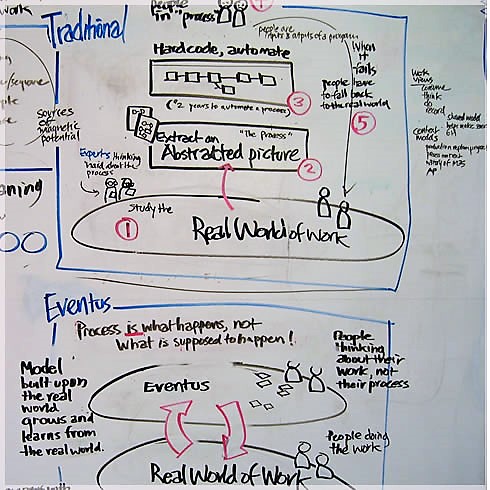 work
Traditional
People
in "process"
people are
inputs & outputs of a program
Hardcode, automate
When
it
fails
people have
to fall back
to the real world
(~2 years to automate a process)
3
5
"The Process"
Extract an
Abstracted picture
2
Sources
of
magnetic
potential
Experts thinking
hard about the
process
Study the
1
Real World of Work
Work
Views
consume
think
do
record
context
models
shared model
Eventus
Process is what happens, not
what is supposed to happen!
Model
built upon
the real
world
grows and
learns from
the real world.
Eventus
People
thinking
about their
work, not
their process
People doing
the work
Real World of Work